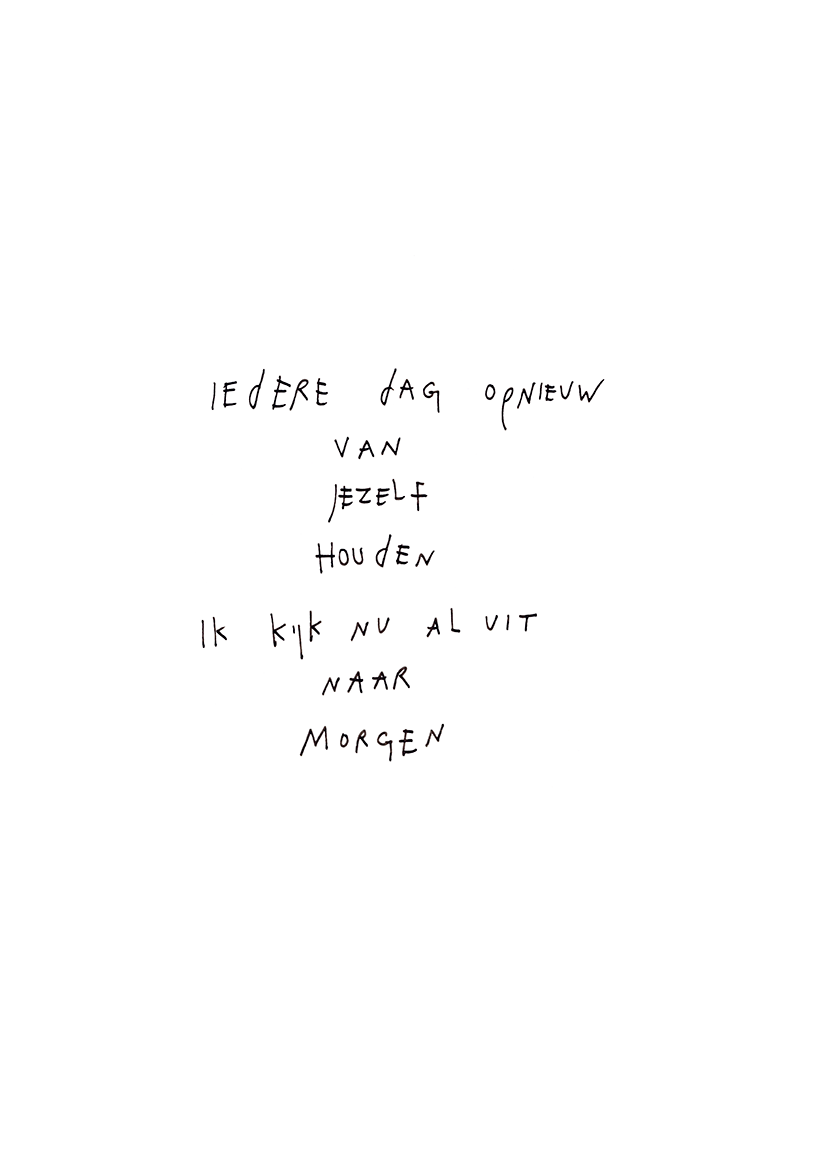 IEdERE dAG OpNIEUW
VAN
JEZELF
HOUdEN
IK KIJK NU AL UIT
NAAR
MORGEN